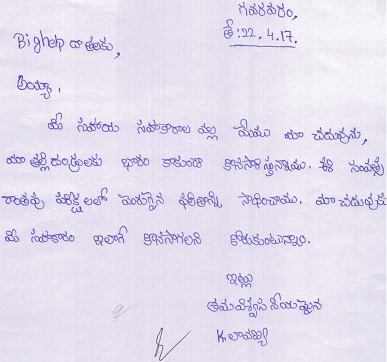 గవరవరం,
తే: 22. 4. 17.
Bighelp దాతలకు,
అయ్యా,
మీ సహాయ సహకారాల వల్ల మేము మా చదువును,
మా తల్లిదండ్రులకు భారం కాకుండా కొనసాగిస్తున్నాము. ఈ సంవత్స
రాంతపు పరీక్షలలో మెరుగైన ఫలితాన్ని సాధించాము. మా చదువుకు
మీ సహకారం ఇలాగే కొనసాగాలని కోరుకుంటున్నాం.
ఇట్లు
తమ విశ్వసనీయమైన
K. లావణ్య